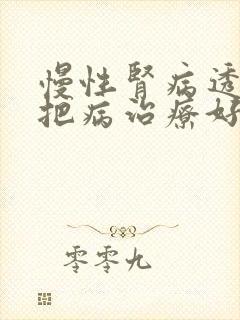 慢性肾病透
把病治疗好
零零九